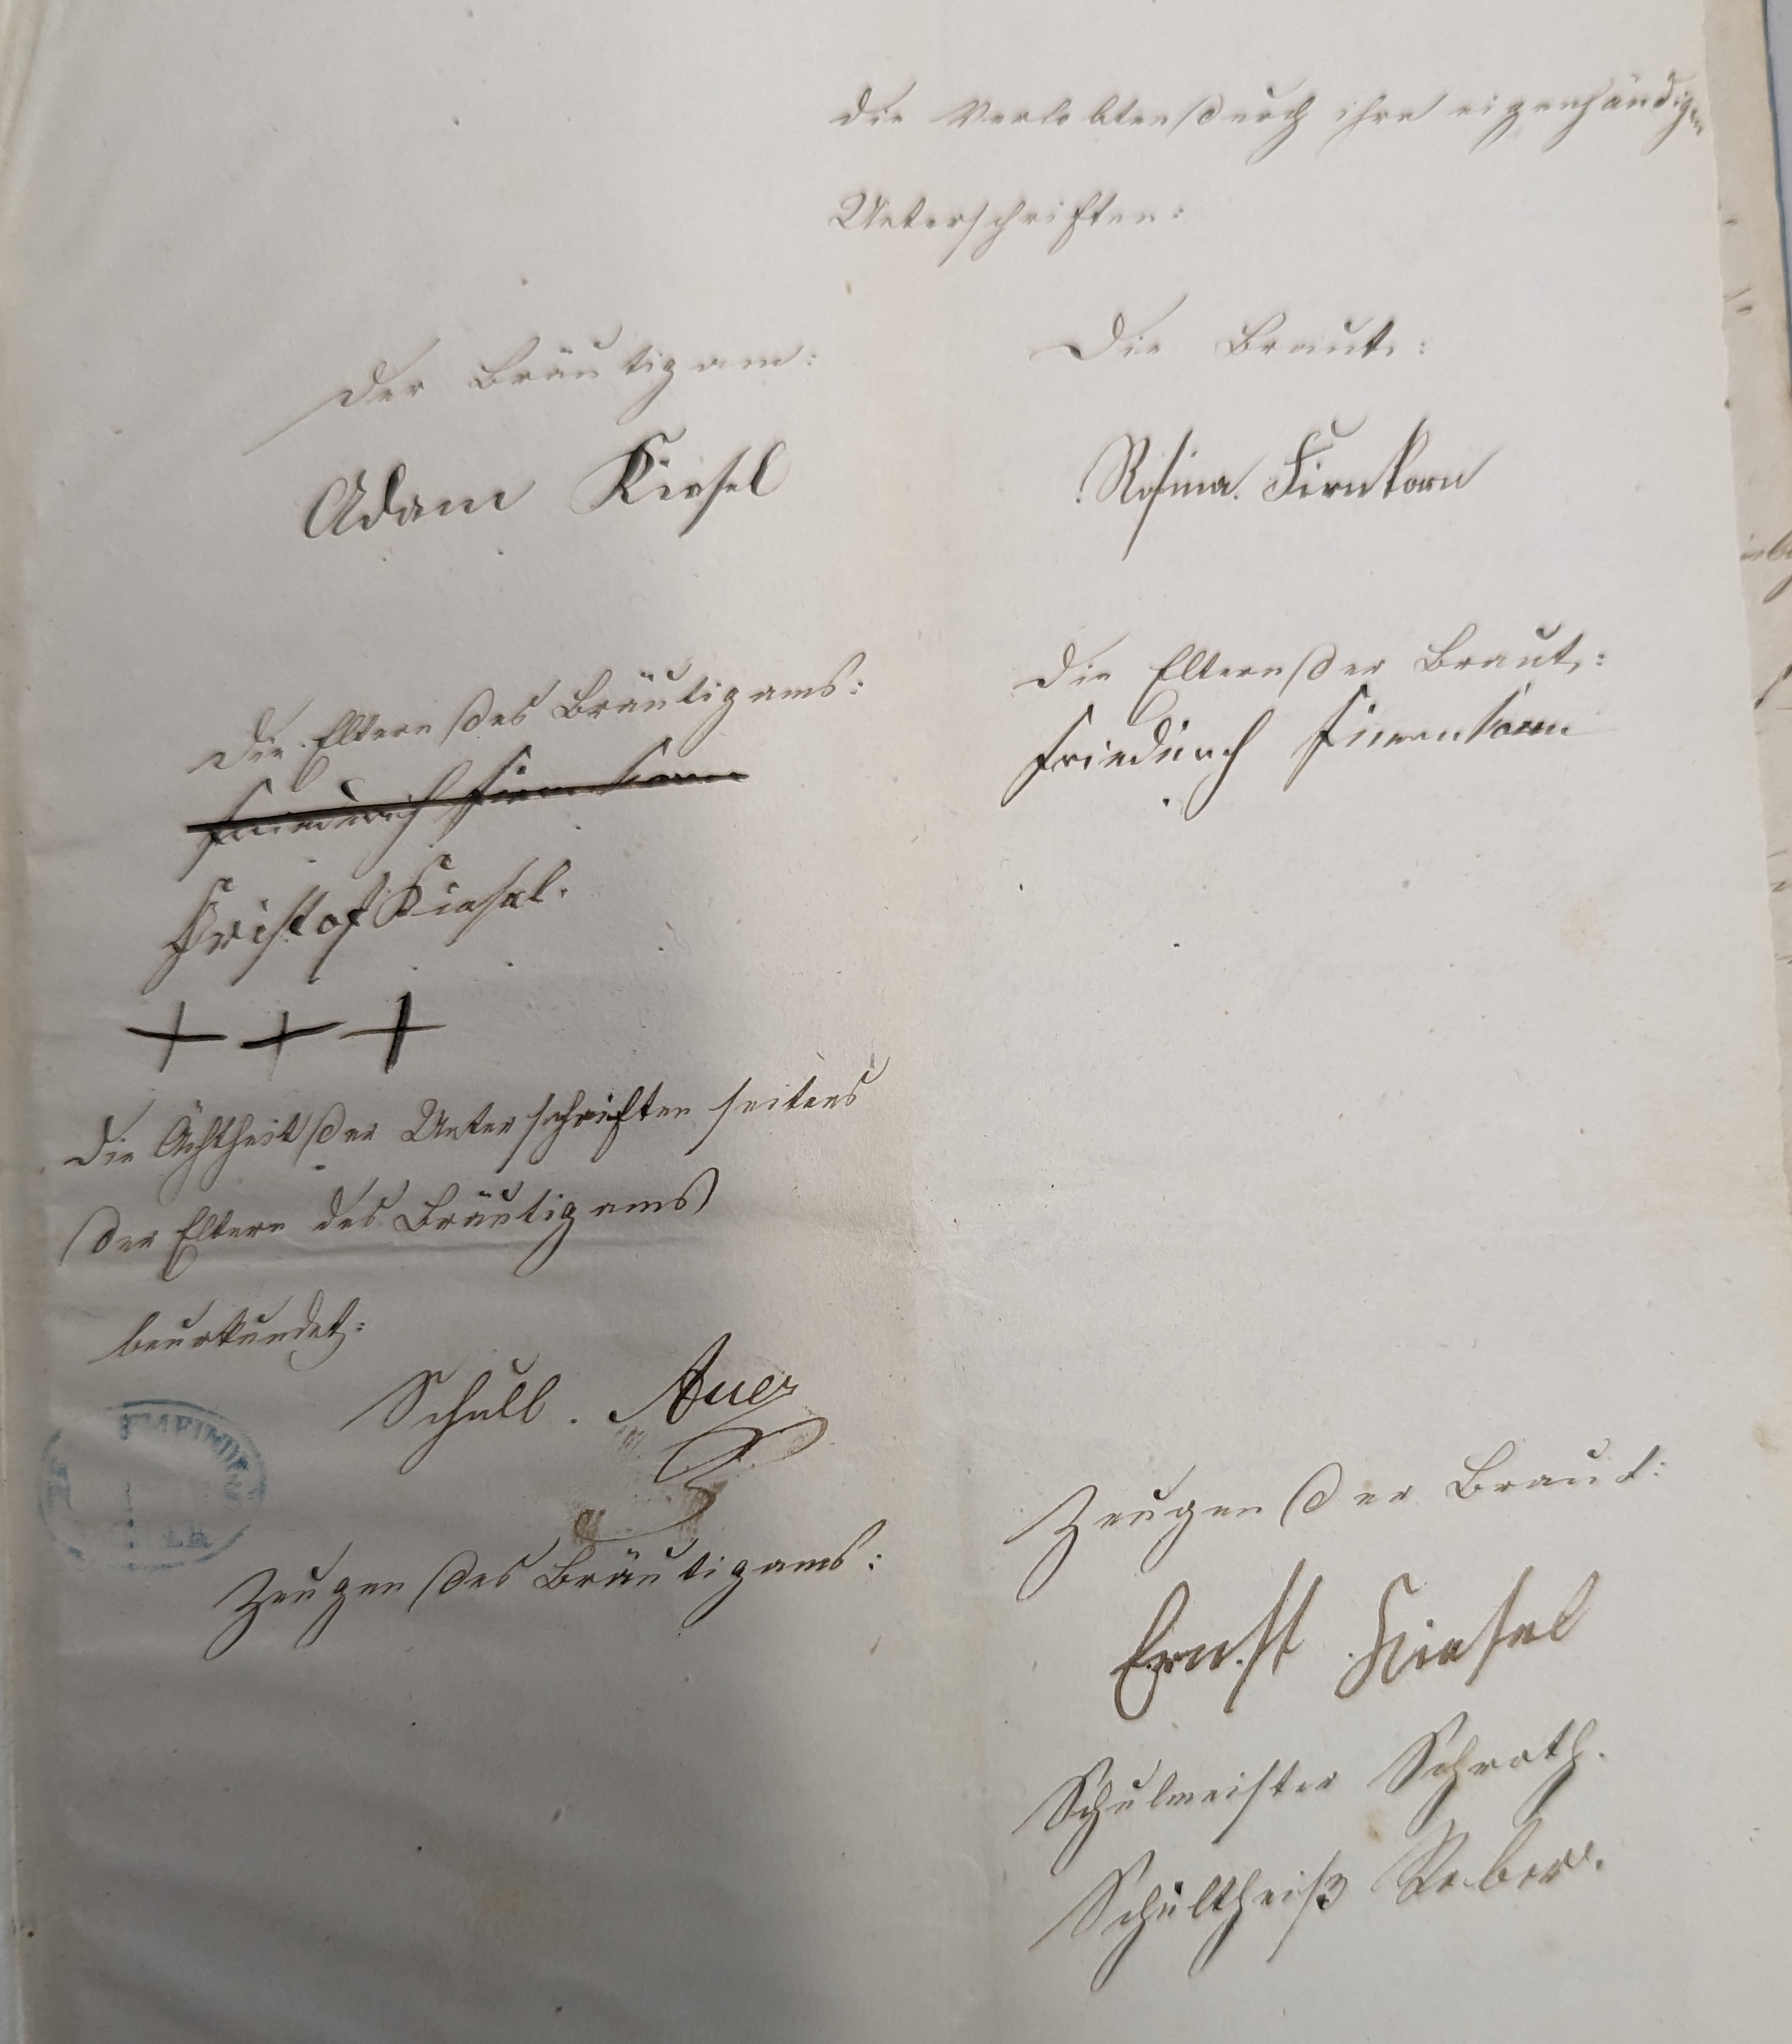 die Verlobten durch ihre eigenhändigen
Unterschriften:
Der Bräutigam:
Adam Kiesel
Die Braut:
Rosina Firnkorn
Die Eltern des Bräutigams:
Friederich Firnkorn
Kristof Kiesel.
+ + +
Die Eltern der Braut:
Friedirich Firnkorn
Die Ächtheit der Unterschriften seitens
der Eltern des Bräutigams
beurkundet:
Schull. Auer
Zeugen des Bräutigams:
Zeugen der Braut:
Ernst Kiesel
Schulmeister Schroth.
Schultheiß Reber.